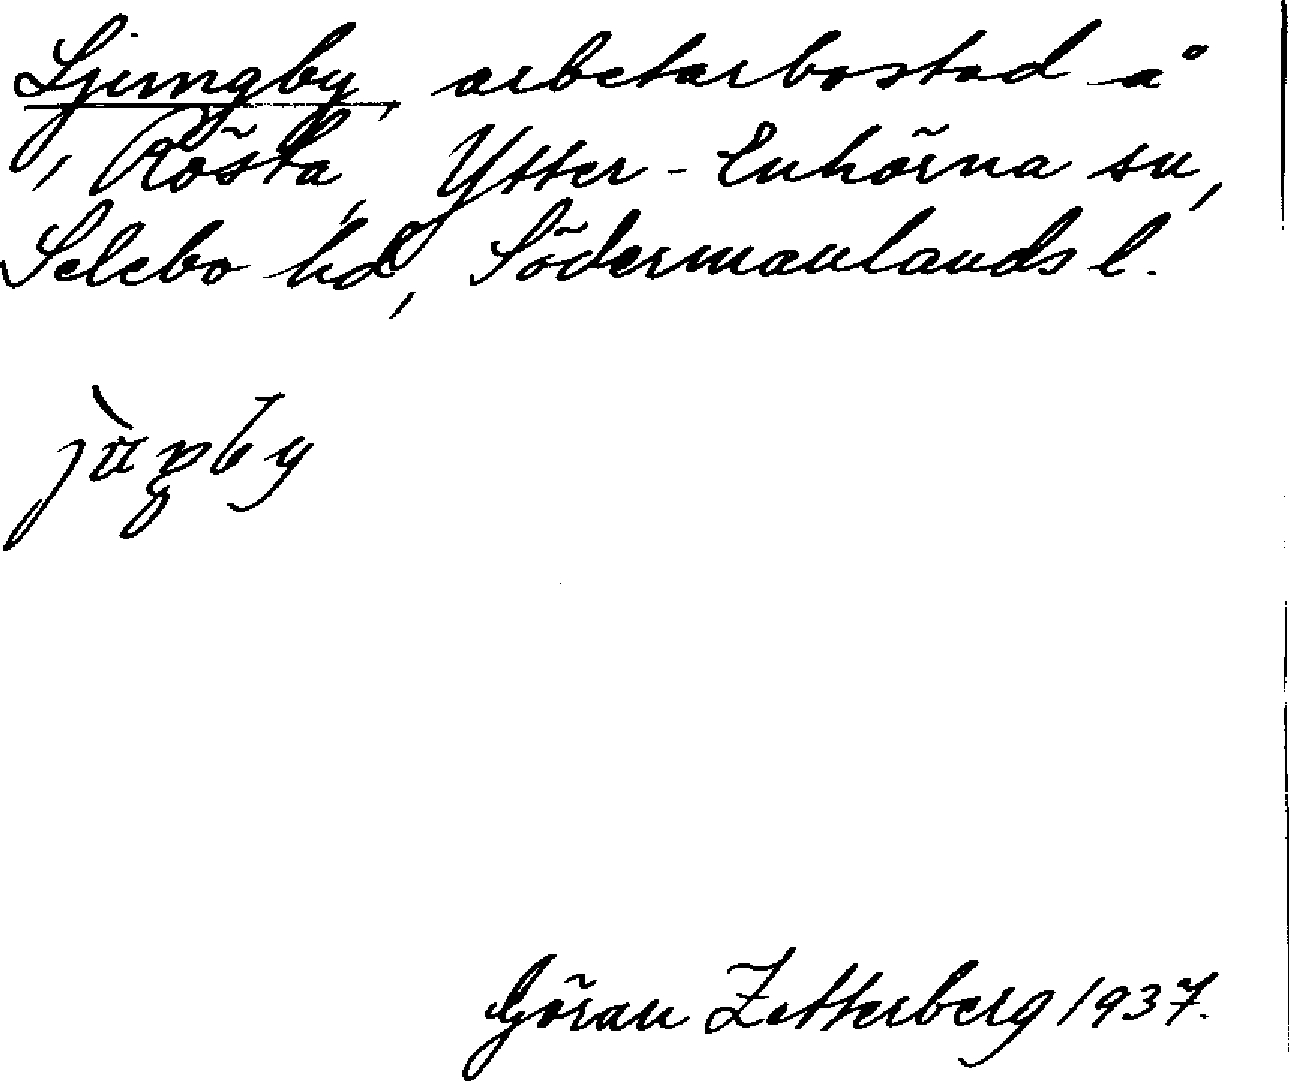 Ljungby, arbetarbostad å
Rösta, Ytter-Enhörna sn,
Selebo hd, Södermanlands l.
jùŋby
Göran Zetterberg 1937.